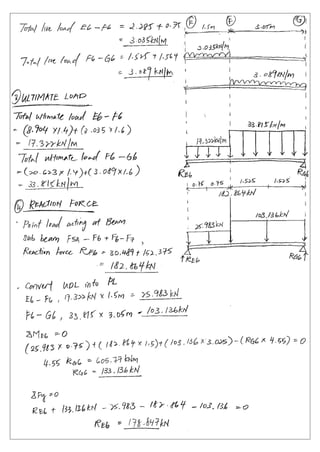 Total live load E6-F6 = 2.285 + 0.75
= 3.035kN/m
Total live load F6-G6 = 1.525 + 1.564
= 3.089 kN/m
③ ULTIMATE LOAD
Total ultimate load E6-F6
= (8.904 x1.4)+(3.035 x1.6)
= 17.322kN/m
Total ultimate load F6-G6
= (20.623x1.4)+(3.089x1.6)
= 33.815kN/m
④ REACTION FORCE
· Point load acting at Beam
sub beam F5A-F6 + F6-F7,
Reaction force RF6 = 30.489 + 152.375
= 182.864kN
· convert UDL into PL
E6-F6, 17.322kN x 1.5m = 25.983kN
F6-G6, 33.815 x 3.05m = 103.136kN
ΣME6 = 0
(25.983 x 0.75)+(182.864 x1.5)+(103.136x3.025)-(RG6 x 4.55)=0
4.55 RG6 = 605.77kNm
RG6 = 133.136kN
ΣFy = 0
RE6 + 133.136kN - 25.983 - 182.864 - 103.136 = 0
RE6 = 178.847kN
E F G
1.5m 3.05m
3.035kN/m
3.089kN/m
33.815kN/m
17.322kN/m
RE6 RG6
0.75 0.75 1.525 1.525
182.864kN
103.136kN
25.983kN
RE6 RG6